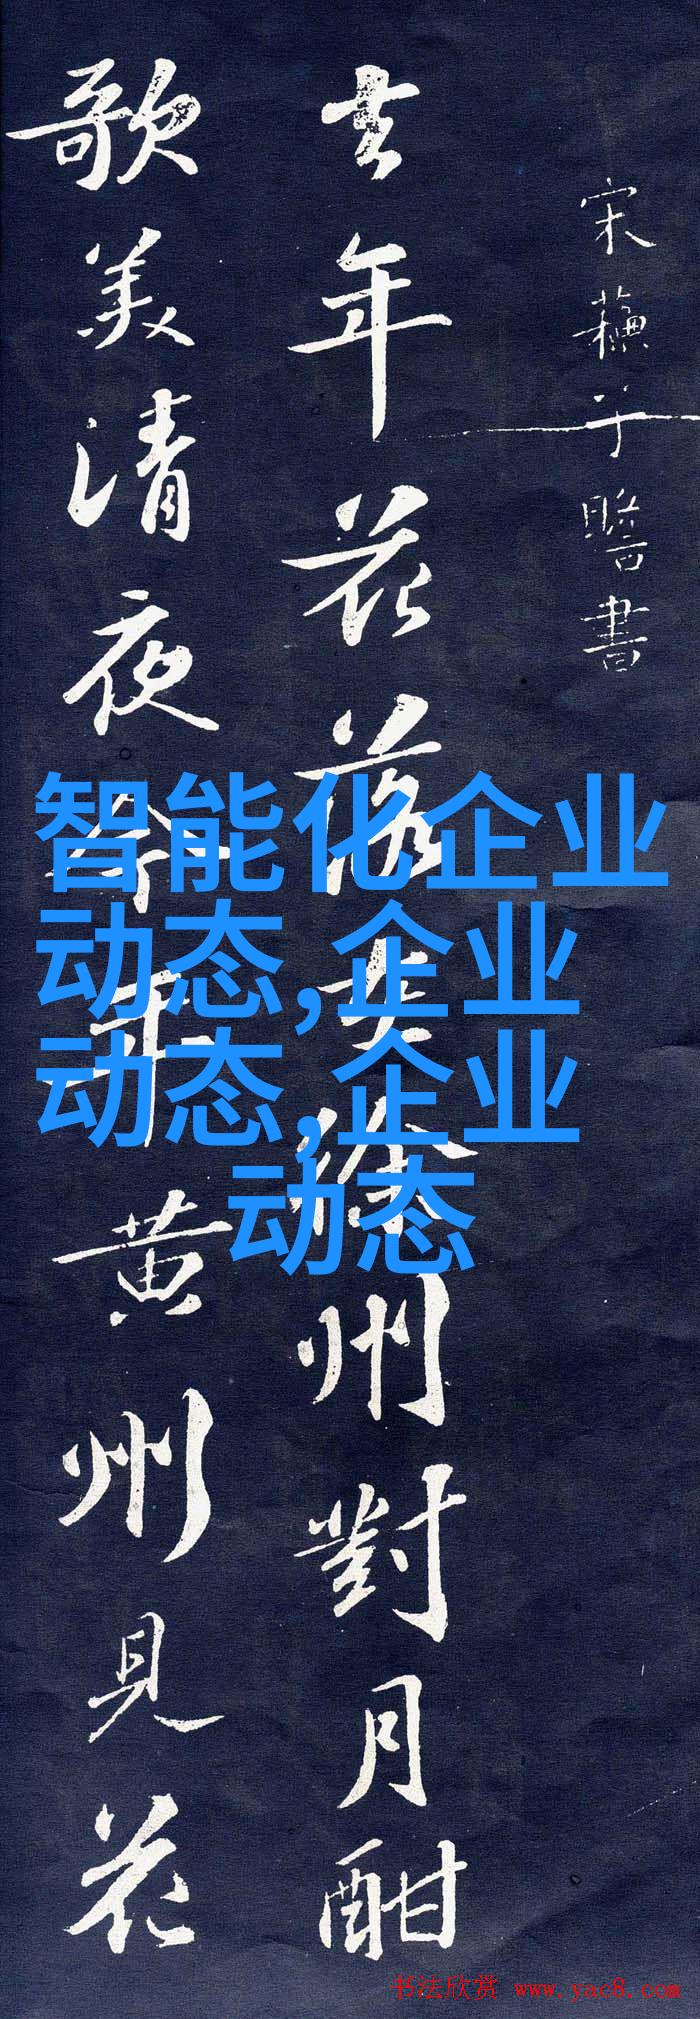 宋蘇子瞻書
去年花落在徐州對月酣
歌美清夜今年黄州見花
智能化企业
动态,企业
动态,企业
动态
书法欣赏 www.yac8.com